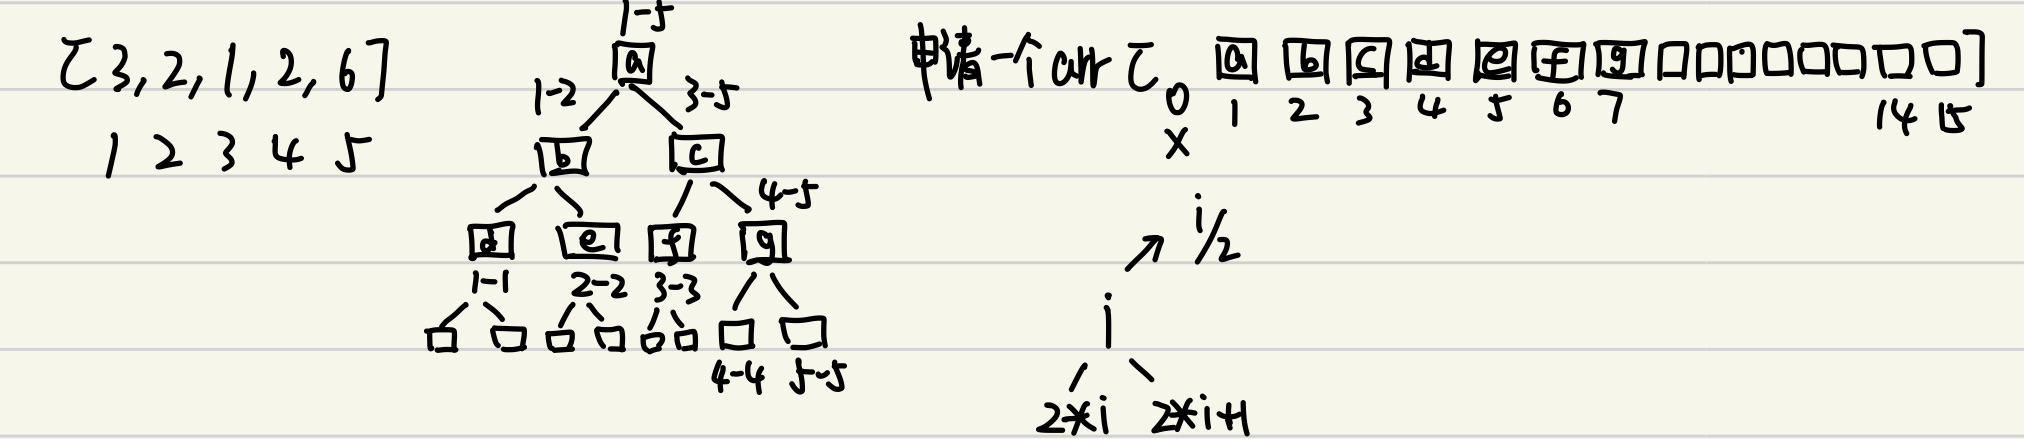 1-5
[3, 2, 1, 2, 6]
1 2 3 4 5
a
1-2 3-5
b c
4-5
d e f g
1-1 2-2 3-3
4-4 5-5
申请一个arr [ a b c d e f g ]
0 1 2 3 4 5 6 7 14 15
x
i/2
i
2*i 2*i+1